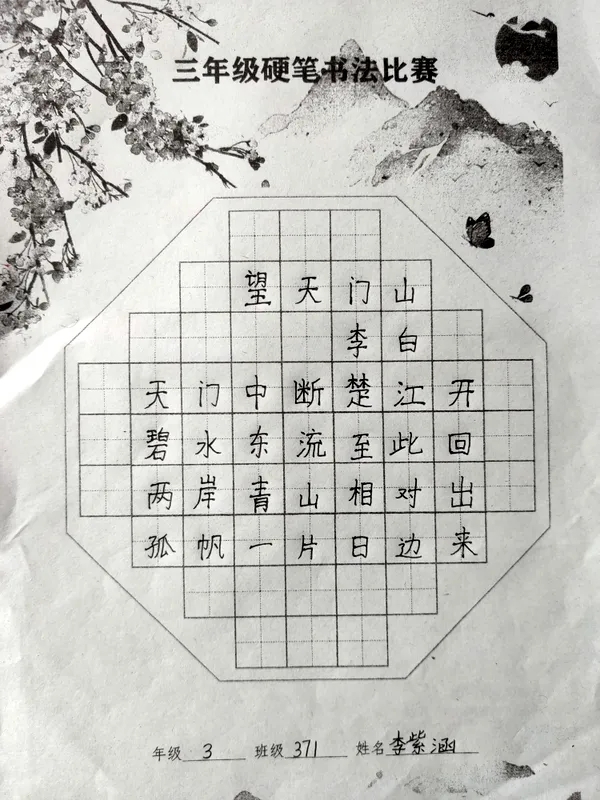 三年级硬笔书法比赛
望天门山
李白
天门中断楚江开
碧水东流至此回
两岸青山相对出
孤帆一片日边来
年级 3 班级 371 姓名 李紫涵